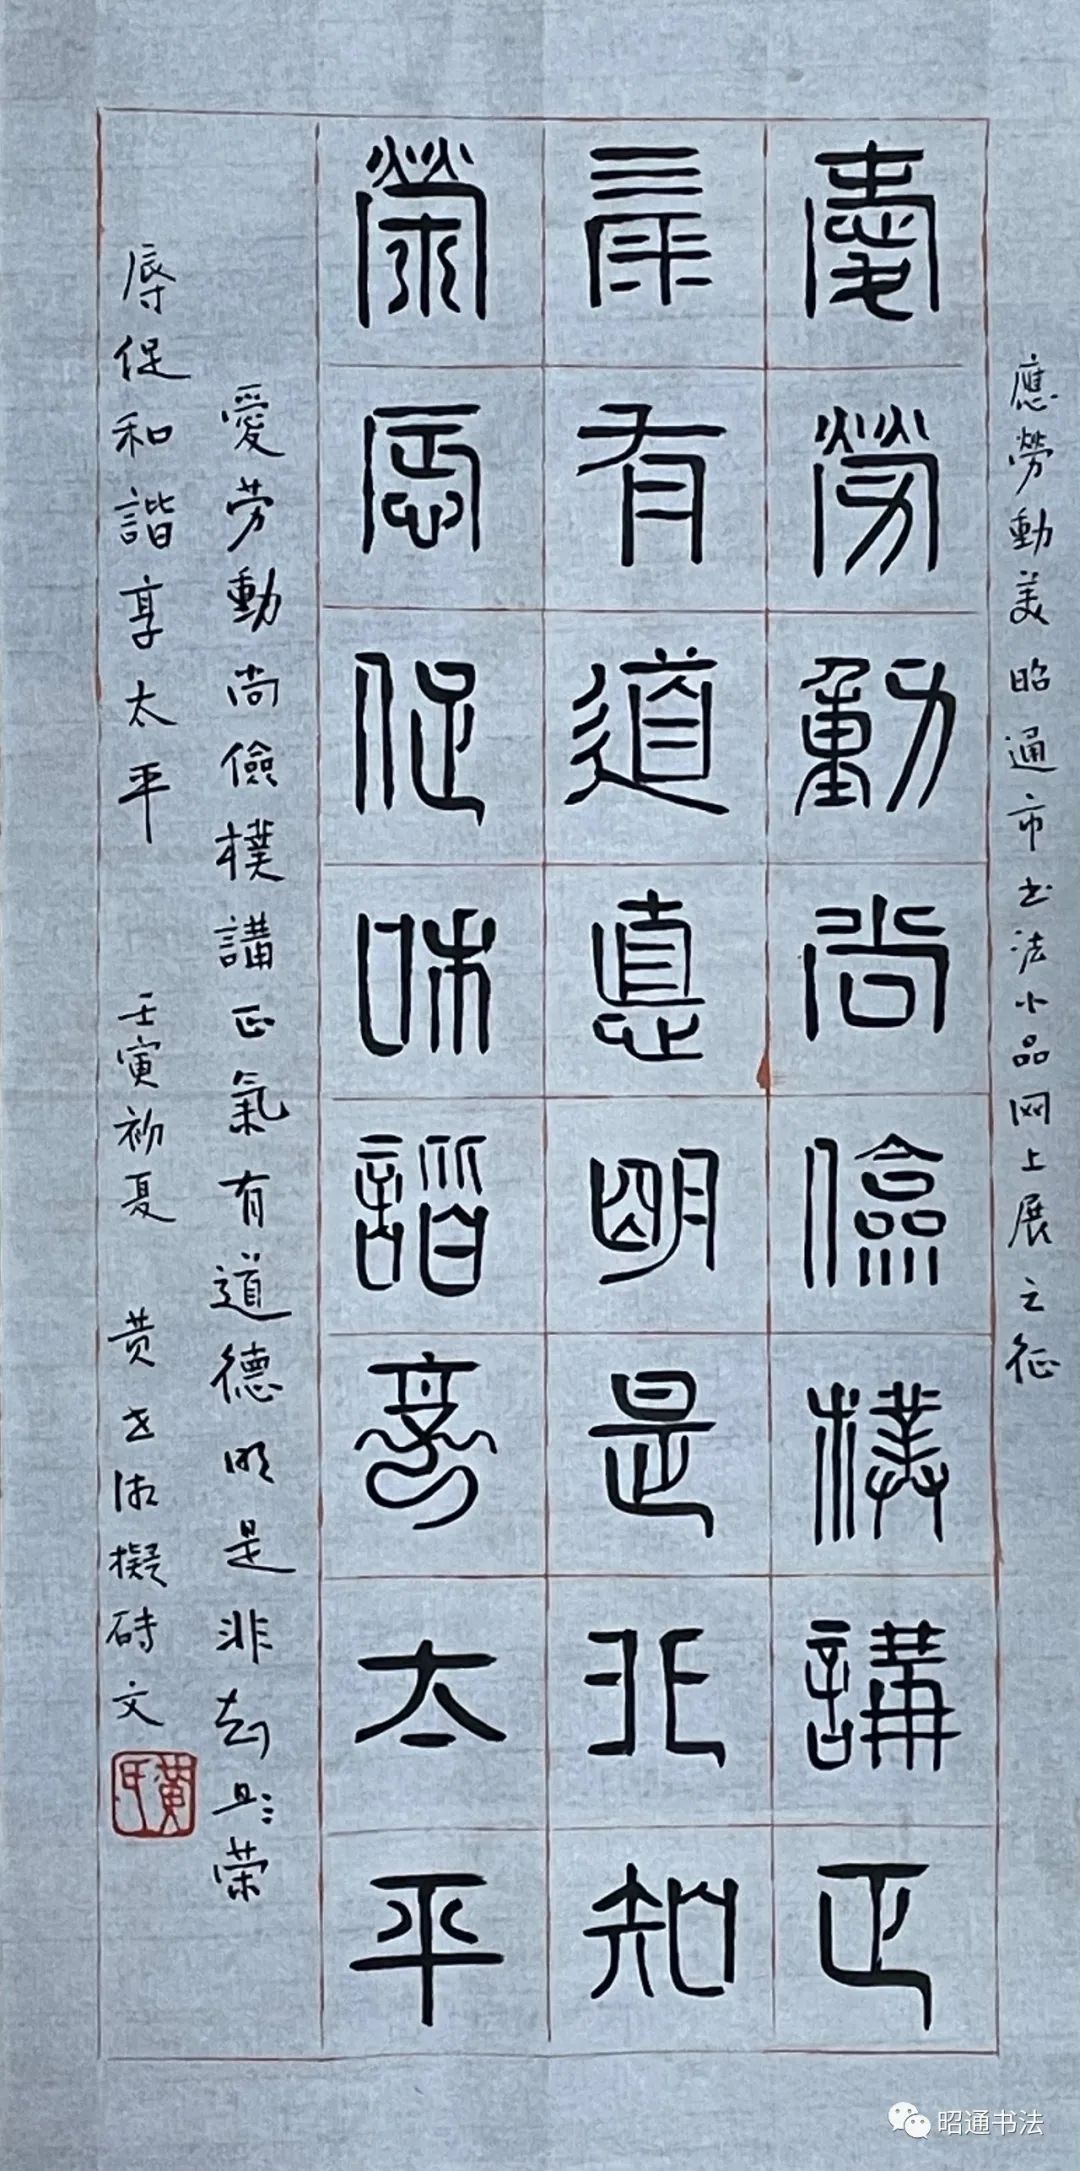 應勞動美昭通市书法小品网上展之征
愛勞動尚儉樸講正
氣有道悳明是非知
榮辱促和諧享太平
愛劳動尚儉樸講正氣有道德明是非知荣
辱促和諧享太平 壬寅初夏 黄擬砖文
黄氏
昭通书法